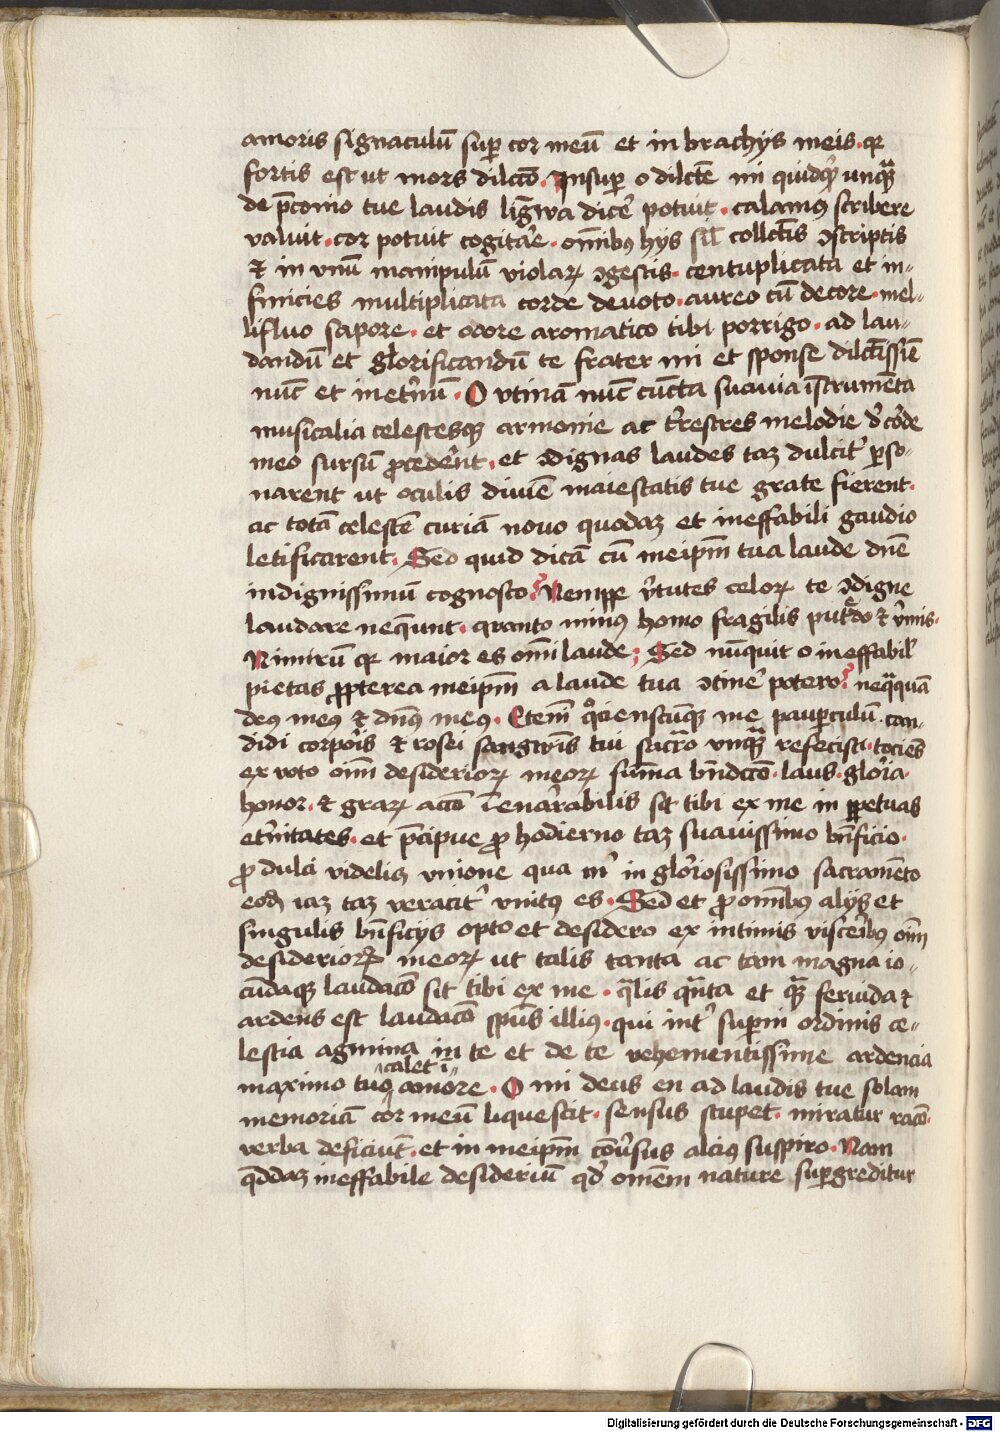 amoris signaculū suꝑ cor meū et in brachijs meis · qꝛ
fortis est ut mors dilcc̄o · Insuꝑ o dilcte mi quidqꝫ unqᷓ
de p̄conio tue laudis lingwa dice᷒ potuit · calamꝰ scribere
valuit · cor potuit cogita᷒e · om̄ibꝰ hijs sil̄ collectis ↄscriptis
⁊ in vnū manipulū violaꝝ ↄgestis · centuplicata et in-
finicies multiplicata corde deuoto · aureo cū decore · mel-
lifluo sapore · et odore aromatico tibi porrigo · ad lau-
dandū et glorificandū te frater mi et sponse dilctissīe
nūc et inet᷒nū · O vtinā nūc cūcta suauia īstrumēta
musicalia celestesqꝫ armonie ac t᷒restres melodie d᷒ co᷒de
meo sursū ꝓcede᷒nt · et ↄdignas laudes taꝫ dulcit᷒ ꝑso-
narent ut oculis diuīe maiestatis tue grate fierent ·
ac totā celestē curiā nouo quodaꝫ et ineffabili gaudio
letificarent · Sed quid dicā cū meip̄m tua laude dn̄e
indignissimū cognosco? Nempe v᷒tutes celoꝝ te ↄdigne
laudare neq̄unt · qranto minꝰ homo fragilis put᷒do ⁊ v᷒mis ·
Nimirū qꝛ maior es om̄i laude; Sed nūquit o ineffabil᷒
pietas ꝓpterea meip̄m a laude tua ↄtine᷒ potero? neqᷓquā
deꝰ meꝰ ⁊ dn̄s meꝰ · Eteni̅ qͦcienscūqꝫ me pauꝑculū can-
didi corpo᷒is ⁊ rosei sangwīs tui sac᷒ro vnqᷓ refecisti · tociēs
ex voto oīm desiderioꝝ meoꝝ sum̄a bn̄dcc̄o · laus · glo᷒ia ·
honor · ⁊ graꝝ acc̄o īena᷒rabilis sit tibi ex me in ꝑpetuas
et᷒nitates · et p̄cipue ꝓ hodierno taꝫ suauissimo bn̄ficio ·
ꝓ dulci videliꝫ vnione qua m᷒ in glo᷒iosissimo sacramēto
eod̄ iaꝫ taꝫ veracit᷒ vnitꝰ es · Sed et ꝓ om̄ibꝰ alijs et
singulis bn̄ficijs opto et desidero ex intimis visce᷒ibꝰ oīm
desiderioꝝ meoꝝ ut talis tanta ac tam magna io-
cūdaqꝫ laudac̄o sit tibi ex me · q̄lis qᷓnta et qᷓ feruida ⁊
ardens est laudac̄o sp̄us illiꝰ · qui int᷒ suꝑni ordinis ce-
lestia agmina in te et de te vehementissime ardencia
calet i-
maximo tuo amore · O mi deus en ad laudis tue solam
memoriā cor meū liquescit · sensus stupet · miratur rac̄o ·
verba deficiūt · et in meip̄m cōu᷒sus alciꝰ suspiro · Nam
qͦddaꝫ ineffabile desideriū qd᷒ omēm nature suꝑgreditur
Digitalisierung gefördert durch die Deutsche Forschungsgemeinschaft - DFG